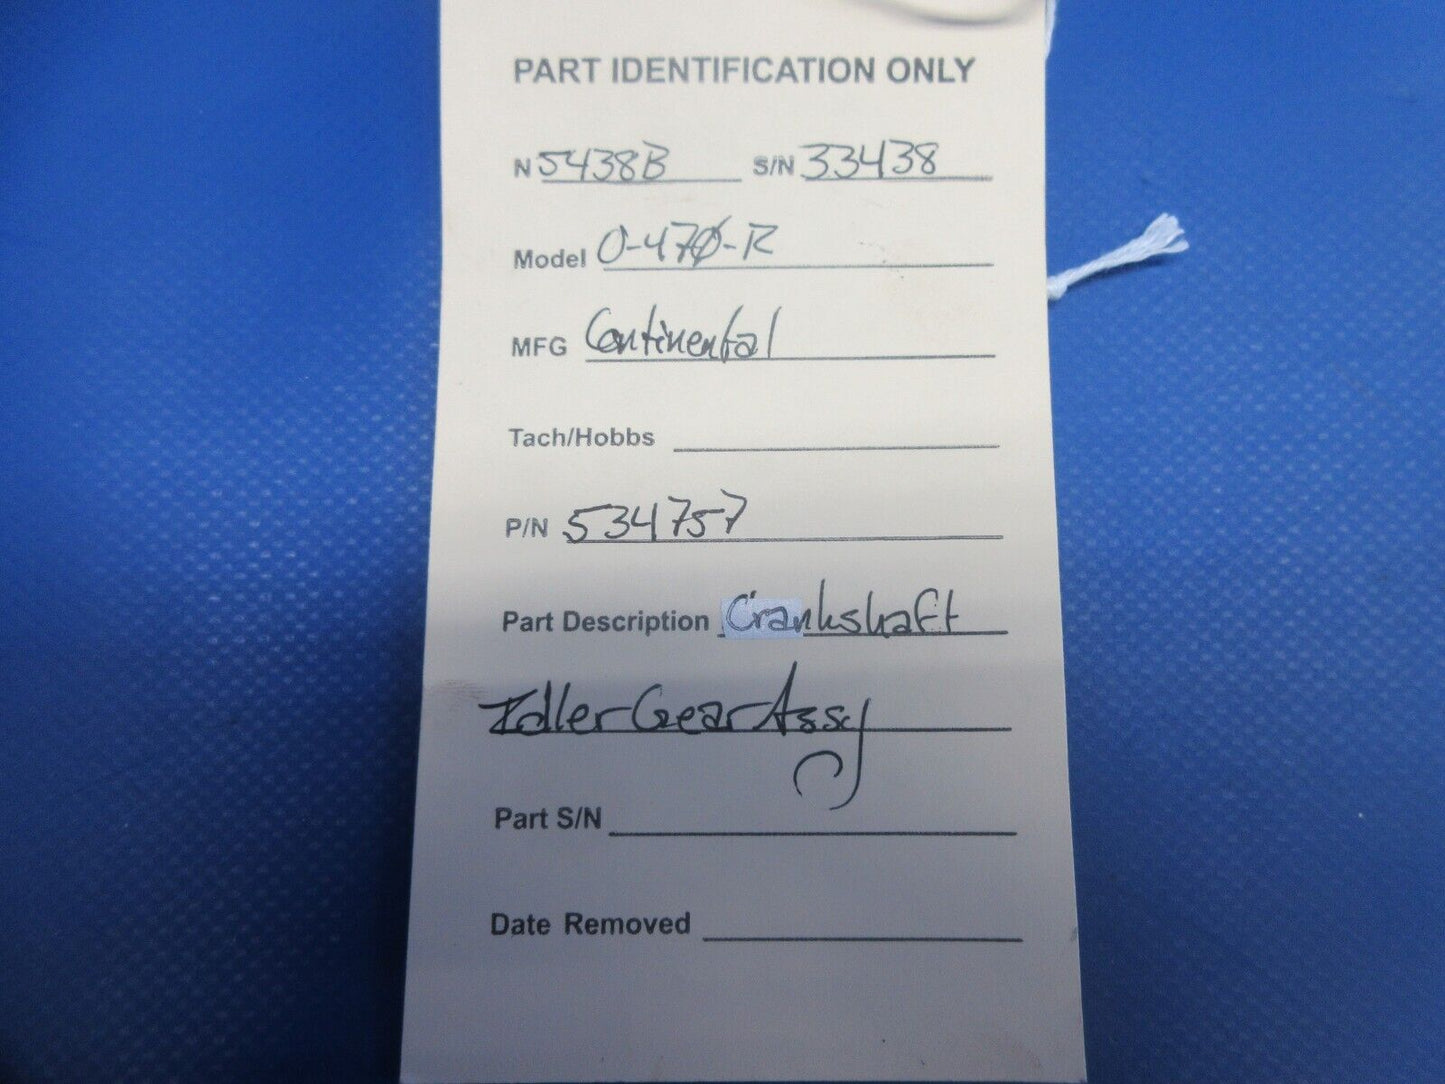 PART IDENTIFICATION ONLY
N 5438B S/N 33438
Model O-470-R
MFG Continental
Tach/Hobbs
P/N 534757
Part Description Crankshaft
Idler Gear Assy
Part S/N
Date Removed